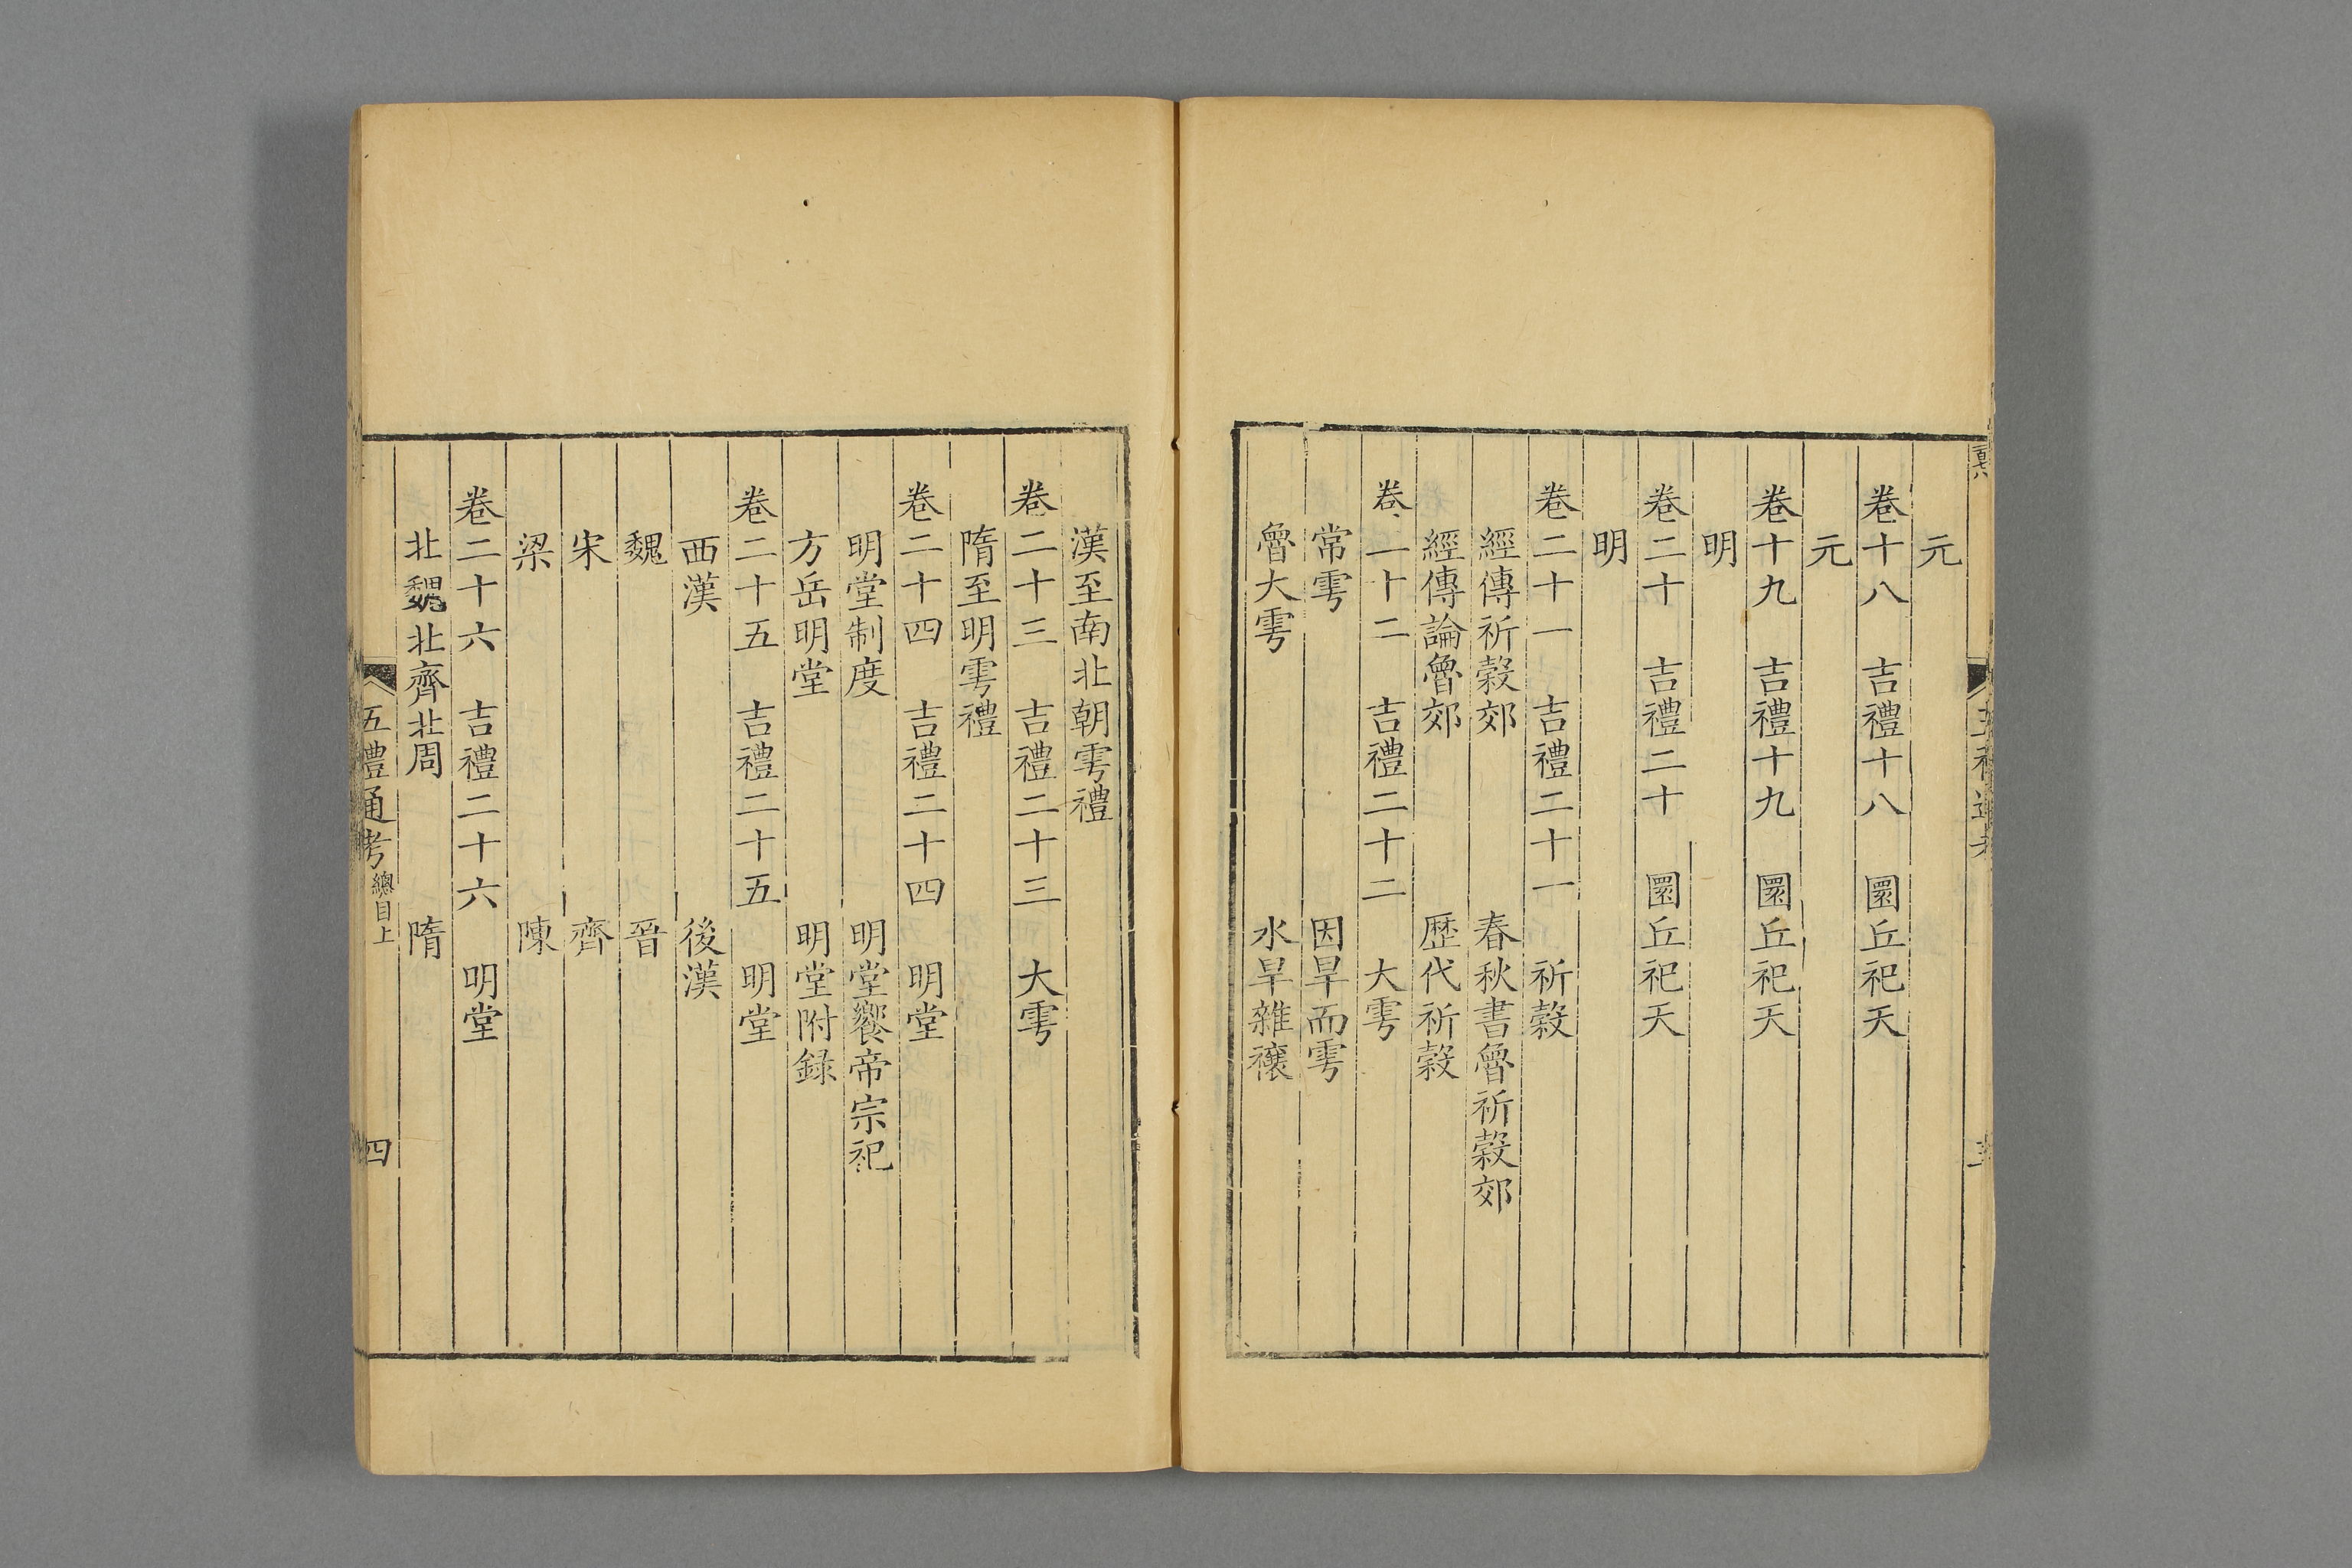 元
卷十八　吉禮十八　圜丘祀天
元
卷十九　吉禮十九　圜丘祀天
明
卷二十　吉禮二十　圜丘祀天
明
卷二十一　吉禮二十一　祈穀
經傳祈穀郊　春秋書魯祈穀郊
經傳論魯郊　歷代祈穀
卷二十二　吉禮二十二　大雩
常雩　因旱而雩
魯大雩　水旱雜禳
漢至南北朝雩禮
卷二十三　吉禮二十三　大雩
隋至明雩禮
卷二十四　吉禮二十四　明堂
明堂制度　明堂饗帝宗祀
方岳明堂　明堂附録
卷二十五　吉禮二十五　明堂
西漢　後漢
魏　晉
宋　齊
梁　陳
卷二十六　吉禮二十六　明堂
北魏北齊北周　隋
五禮通考 總目上　四